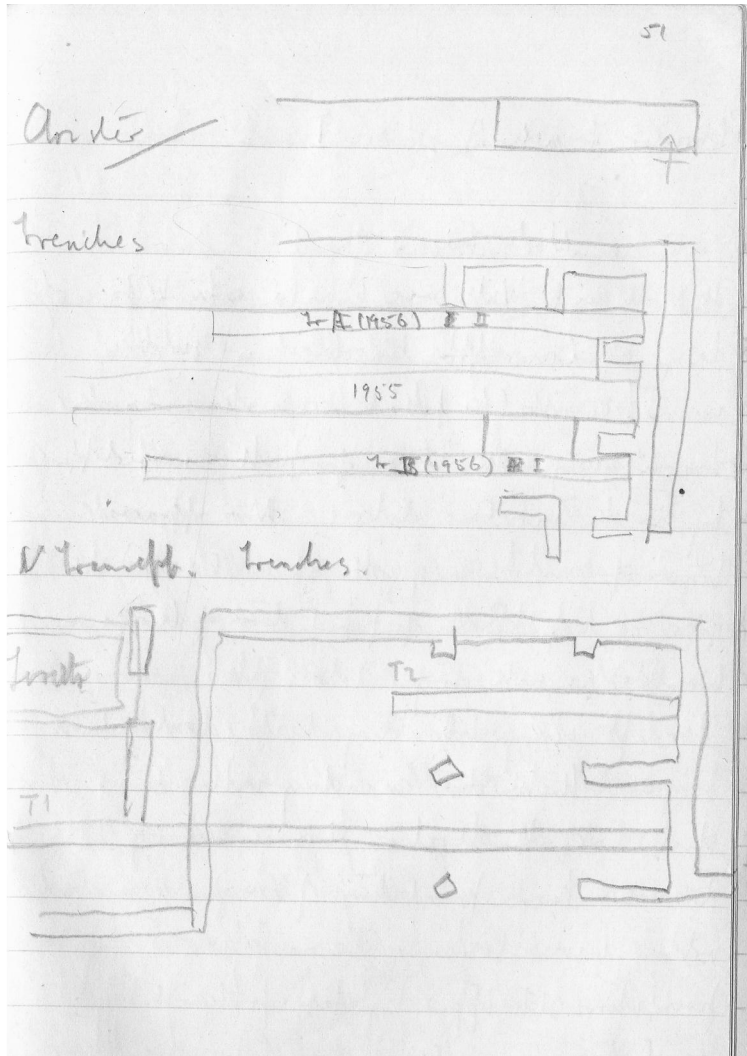 51
trenches
Tr I (1956) II
1955
Tr B (1956) I
N Transept. trenches.
T2
T1